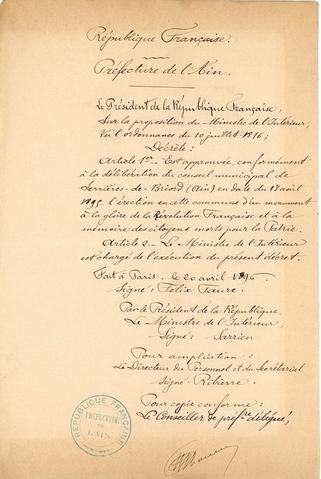 République Française.
Préfecture de l'Ain.
Le Président de la République Française,
Sur la proposition du Ministre de l'Intérieur,
Vu l'ordonnance du 10 juillet 1816;
Décrète:
Article 1er - Est approuvée, conformément
à la délibération du conseil municipal de
Serrières-de-Briord (Ain) en date du 18 août
1895, l'érection en cette commune d'un monument
à la gloire de la Révolution Française et à la
mémoire des citoyens morts pour la Patrie.
Article 2 - Le Ministre de l'Intérieur
est chargé de l'exécution du présent décret.
Fait à Paris, le 20 avril 1896
Signé: Felix Faure.
Par le Président de la République
Le Ministre de l'Intérieur,
Signé: Sarrien
Pour ampliation:
Le Directeur du Personnel et du Secrétariat
Signé:
Pour copie conforme:
Le Conseiller de préfre délégué,
REPUBLIQUE FRANÇAISE
PREFECTURE
DE
L'AIN